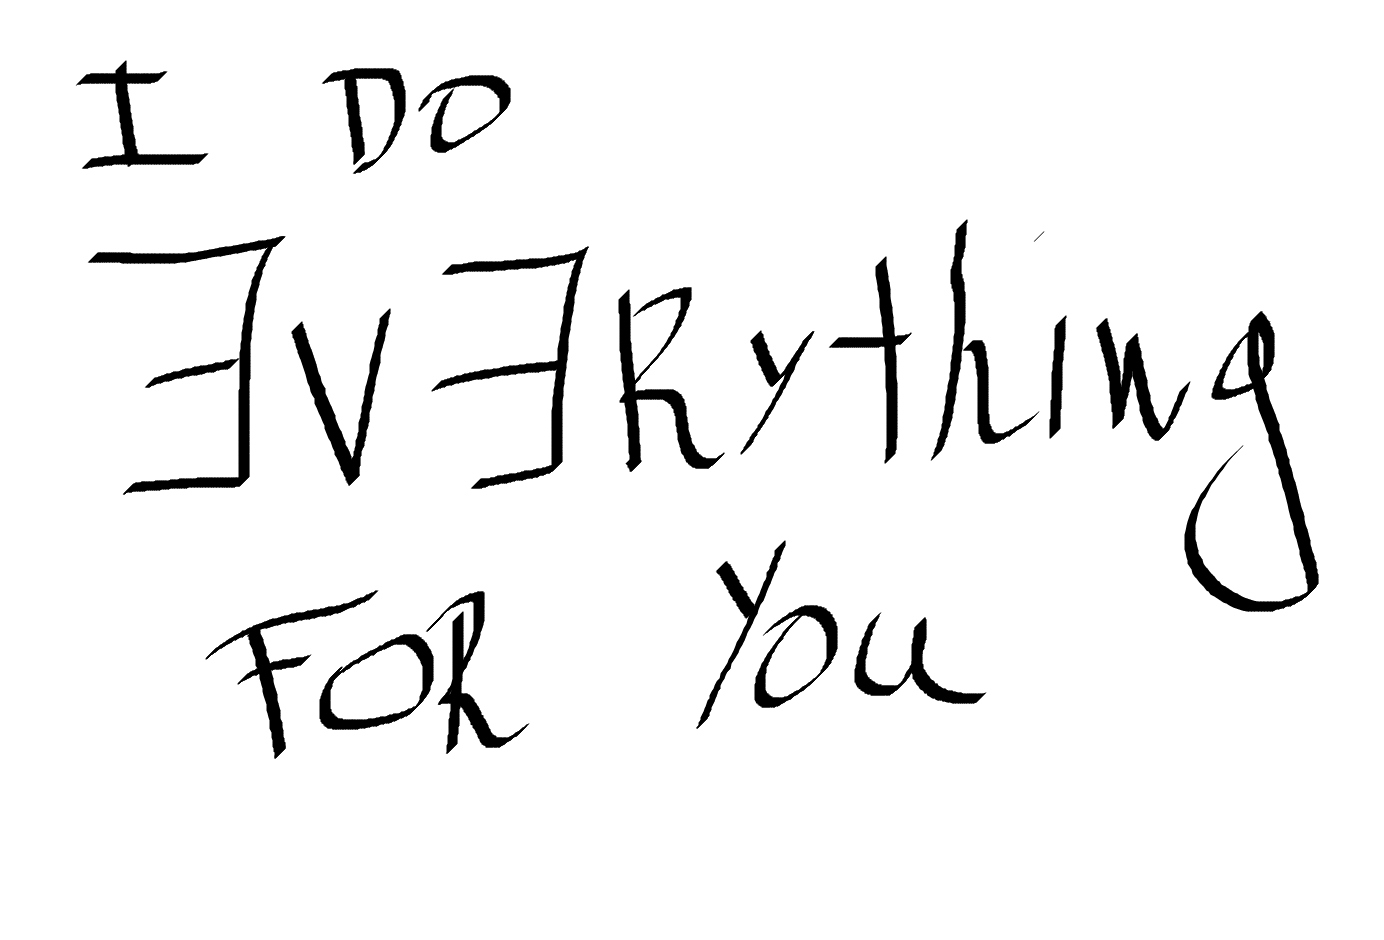 I DO
ƎVƎRything
FOR YOU